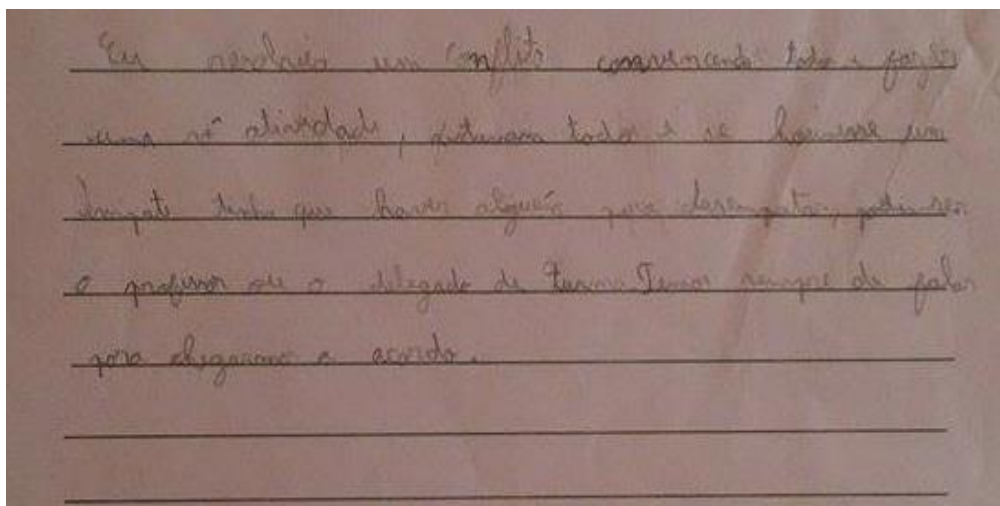 Eu resolveria um conflito convencendo todos a fazer
uma só atividade, votavam todos e se houvesse um
empate tinha que haver alguém para desempatar, podia ser
o professor ou o delegado de turma. Temos sempre de falar
para chegarmos a acordo.